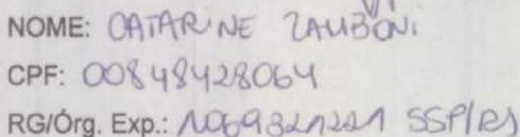 NOME: CATARINE ZAMBONI
CPF: 00848428064
RG/Órg. Exp.: 1069321221 SSP/RS